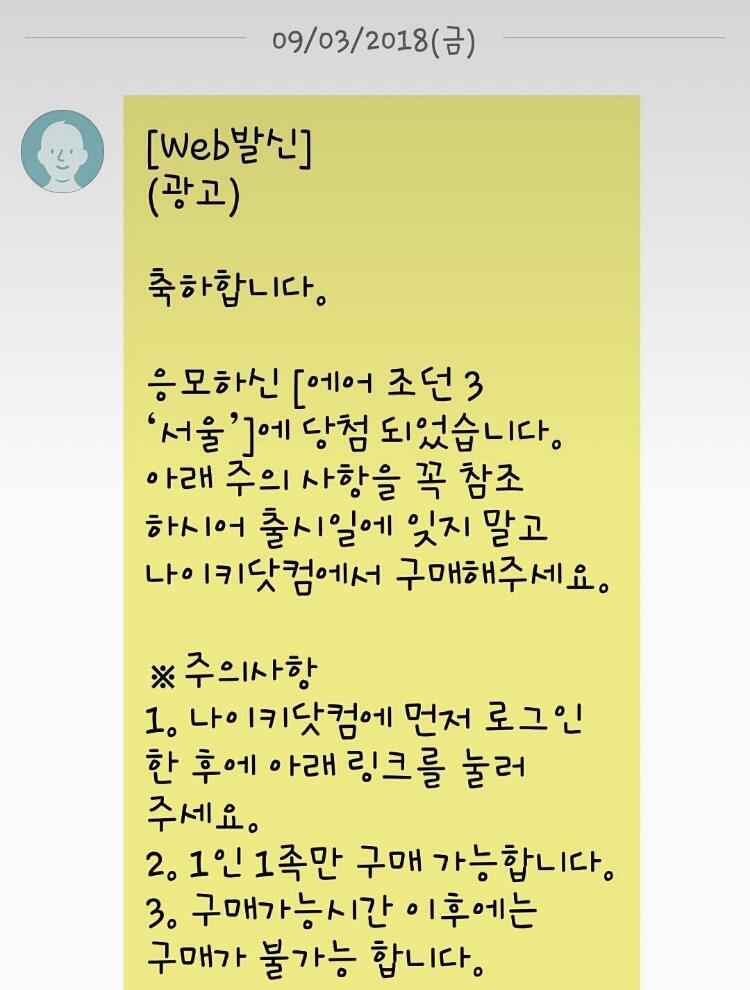 09/03/2018(금)
[Web발신]
(광고)
축하합니다.
응모하신 [에어 조던 3
‘서울’]에 당첨 되었습니다.
아래 주의 사항을 꼭 참조
하시어 출시일에 잊지 말고
나이키닷컴에서 구매해주세요.
※ 주의사항
1. 나이키닷컴에 먼저 로그인
한 후에 아래 링크를 눌러
주세요.
2. 1인 1족만 구매 가능합니다.
3. 구매가능시간 이후에는
구매가 불가능 합니다.